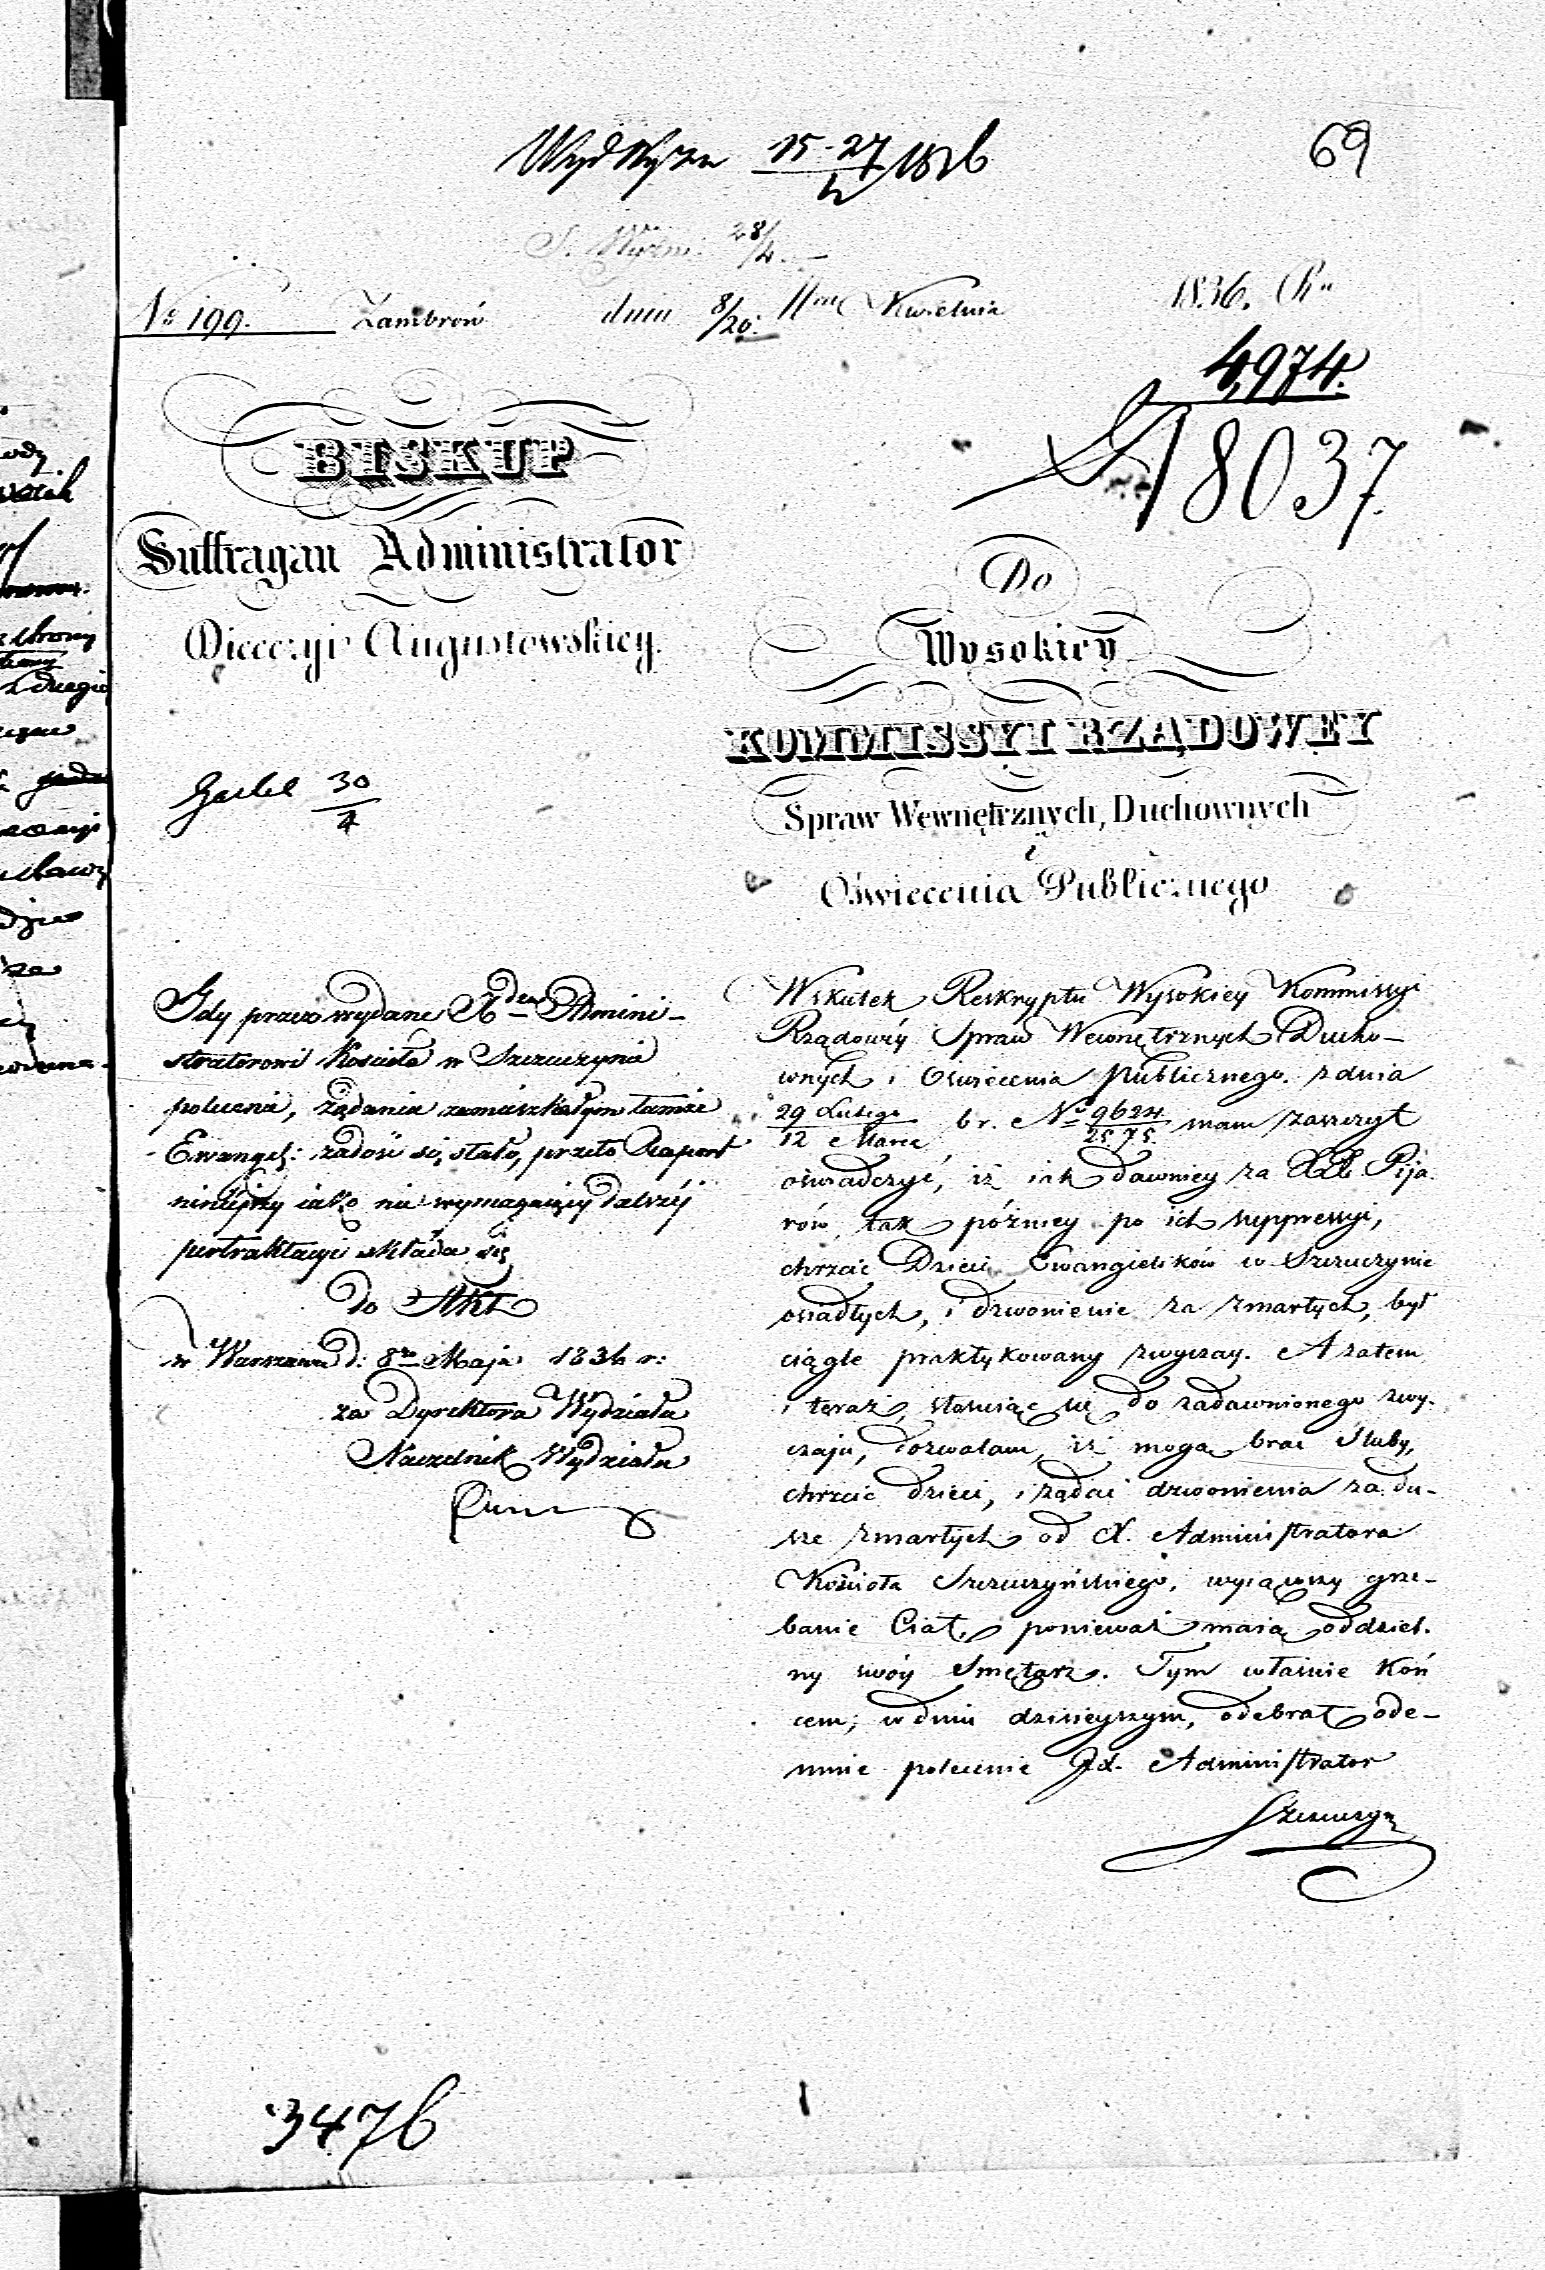 69
15-27
28/4
No 199. Zambrow dnia 8/20. Kwietnia 1836. R.
4,974.
18037.
BISKUP
Suffragan Administrator
Diecezyi Augustowskiey.
Do
Wysokiey
KOMMISSYI RZĄDOWEY
Spraw Wewnętrznych, Duchownych
i
Oświecenia Publicznego
30
4
Gdy przez wydane Xdzu Admini-
stratorowi Kościoła w Szczuczynie
polecenie, żądaniu zamieszkałym tamże
Ewangel: zadość się stało, przeto Raport
ninieyszy iako nie wymagaiący dalszéj
pertraktacyi składa się
do Akt
w Warszawie d: 8go Maja 1836 r:
za Dyrektora Wydziału
Naczelnik Wydziału
Wskutek Reskryptu Wysokiey Kommissyi
Rządowéy Spraw Wewnętrznych Ducho-
wnych i Oświecenia Publicznego z dnia
29 Lutego
12 Marca br. No 9624
2575 mam zaszczyt
oświadczyć, iż iak dawniey za XX. Pija-
rów, tak późniey po ich suppressyi,
chrzcić Dzieci Ewangielików w Szczuczynie
osiadłych, i dzwonienie za zmarłych, był
ciągle praktykowany zwyczay. A zatem
i teraz, stosuiąc się do zadawnionego zwy-
czaju, dozwalam, iż mogą brać śluby,
chrzcić dzieci, i żądać dzwonienia za du-
sze zmarłych od X. Administratora
Kościoła Szczuczyńskiego, wyiąwszy grze-
banie Ciał, ponieważ maią oddziel-
ny swóy Smętarz. Tym właśnie koń-
cem, w dniu dzisieyszym, odebrał ode-
mnie polecenie Xd. Administrator
Szczuczyn
3476